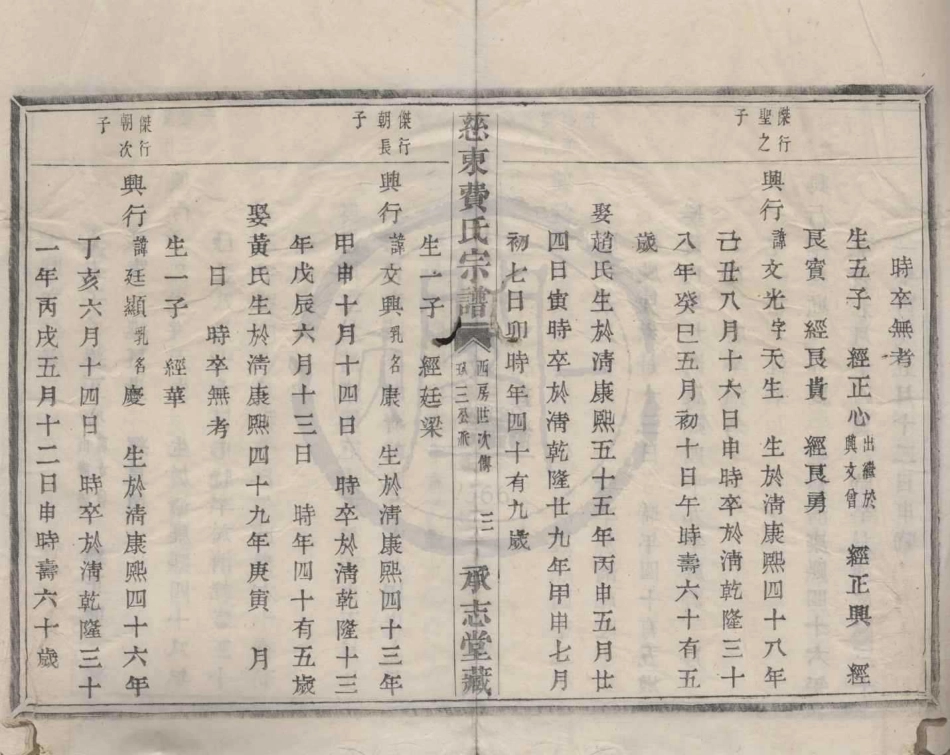 時卒無考
生五子　經正心出繼於興文曾　經正興　經
艮賓　經艮貴　經艮勇
傑行聖之子
興行諱文光字天生　生於清康熙四十八年
己丑八月十六日申時卒於清乾隆三十
八年癸巳五月初十日午時壽六十有五
歲
娶趙氏生於清康熙五十五年丙申五月廿
四日寅時卒於清乾隆廿九年甲申七月
初七日卯時年四十有九歲
慈東費氏宗譜　西房世次傳　三公派　三　承志堂藏
生一子　經廷梁
傑行朝長子
興行諱文興乳名康　生於清康熙四十三年
甲申十月十四日　時卒於清乾隆十三
年戊辰六月十三日　時年四十有五歲
娶黃氏生於清康熙四十九年庚寅　月
日　時卒無考
生一子　經華
傑行朝次子
興行諱廷顯乳名慶　生於清康熙四十六年
丁亥六月十四日　時卒於清乾隆三十
一年丙戌五月十二日申時壽六十歲